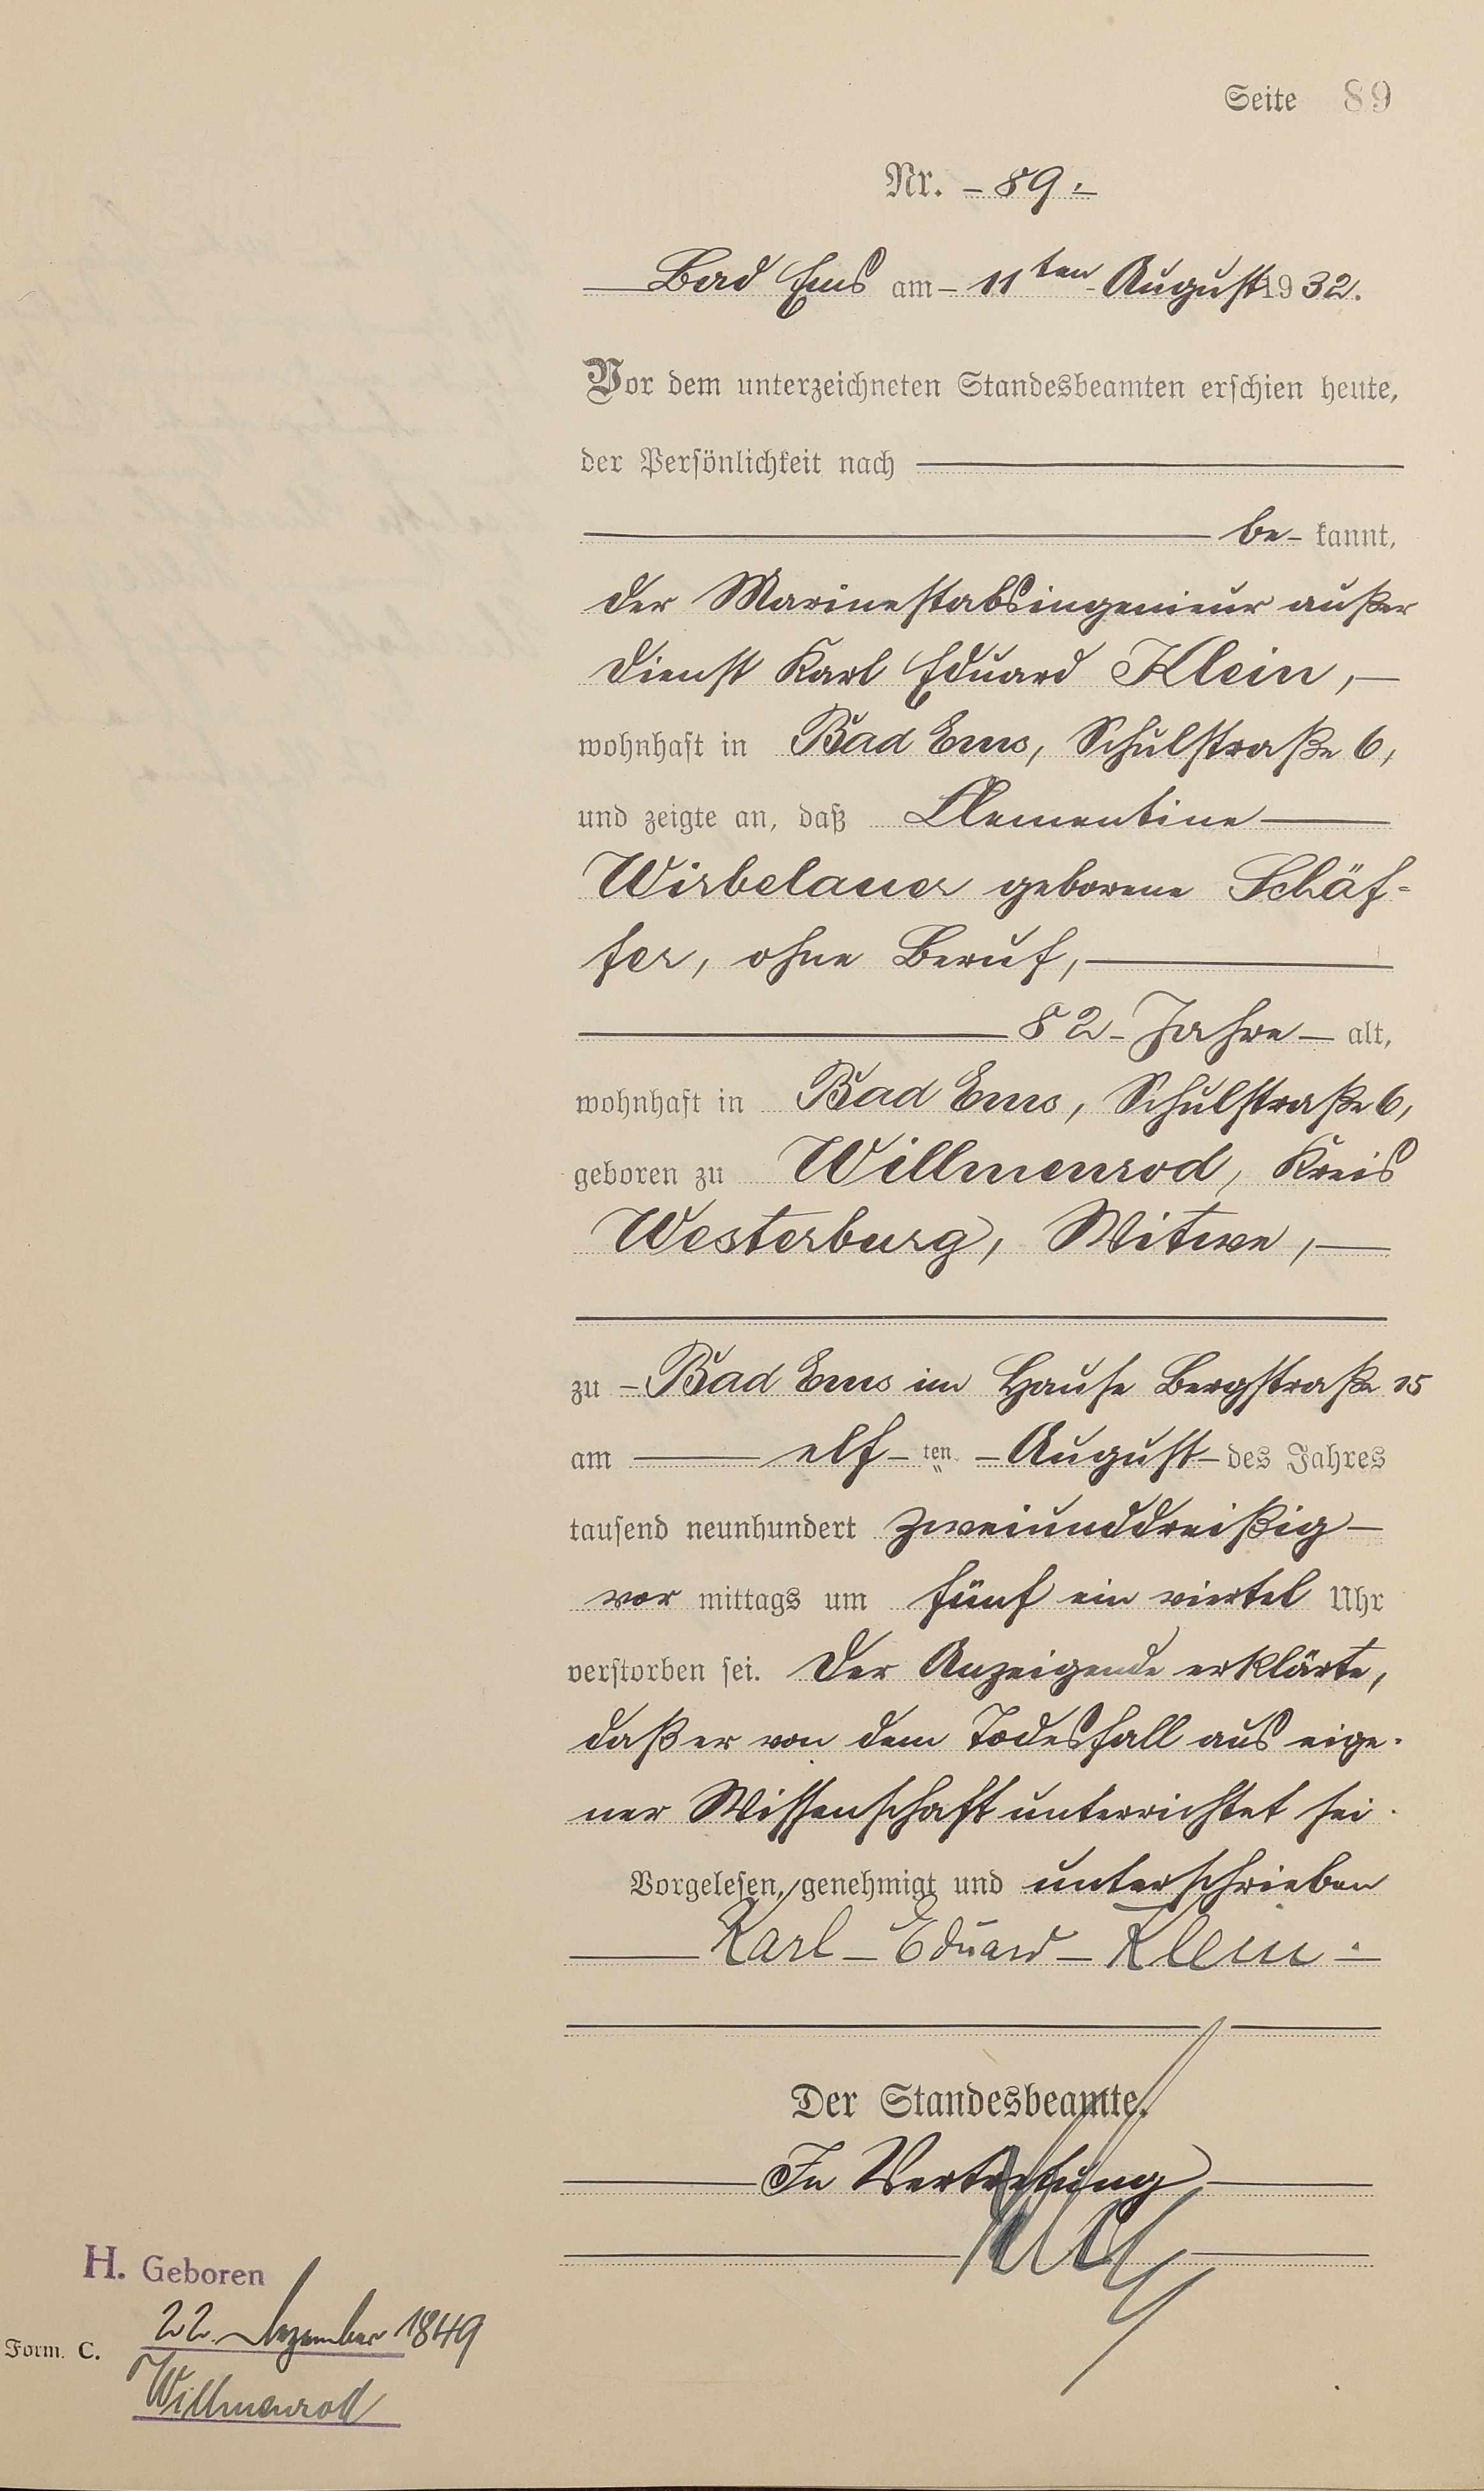 Seite 89
Nr. – 89. –
Bad Ems am – 11ten August 1932.
Vor dem unterzeichneten Standesbeamten erschien heute,
der Persönlichkeit nach
be- kannt,
der Marinestabsingenieur außer
Dienst Karl Eduard Klein, –
wohnhaft in Bad Ems, Schulstraße 6,
und zeigte an, daß Clementine
Wirbelauer geborene Schäf-
fer, ohne Beruf,
82 – Jahre – alt,
wohnhaft in Bad Ems, Schulstraße 6,
geboren zu Willmenrod, Kreis
Westerburg, Witwe, –
zu – Bad Ems im Hause Bergstraße 15
am elf – ten – August – des Jahres
tausend neunhundert zweiunddreißig –
vor mittags um fünf ein viertel Uhr
verstorben sei. Der Anzeigende erklärte,
daß er von dem Todesfall aus eige-
ner Wissenschaft unterrichtet sei.
Vorgelesen, genehmigt und unterschrieben
Karl – Eduard – Klein. –
Der Standesbeamte.
In Vertretung
H. Geboren
22. Dezember 1849
Form. C.
Willmenrod